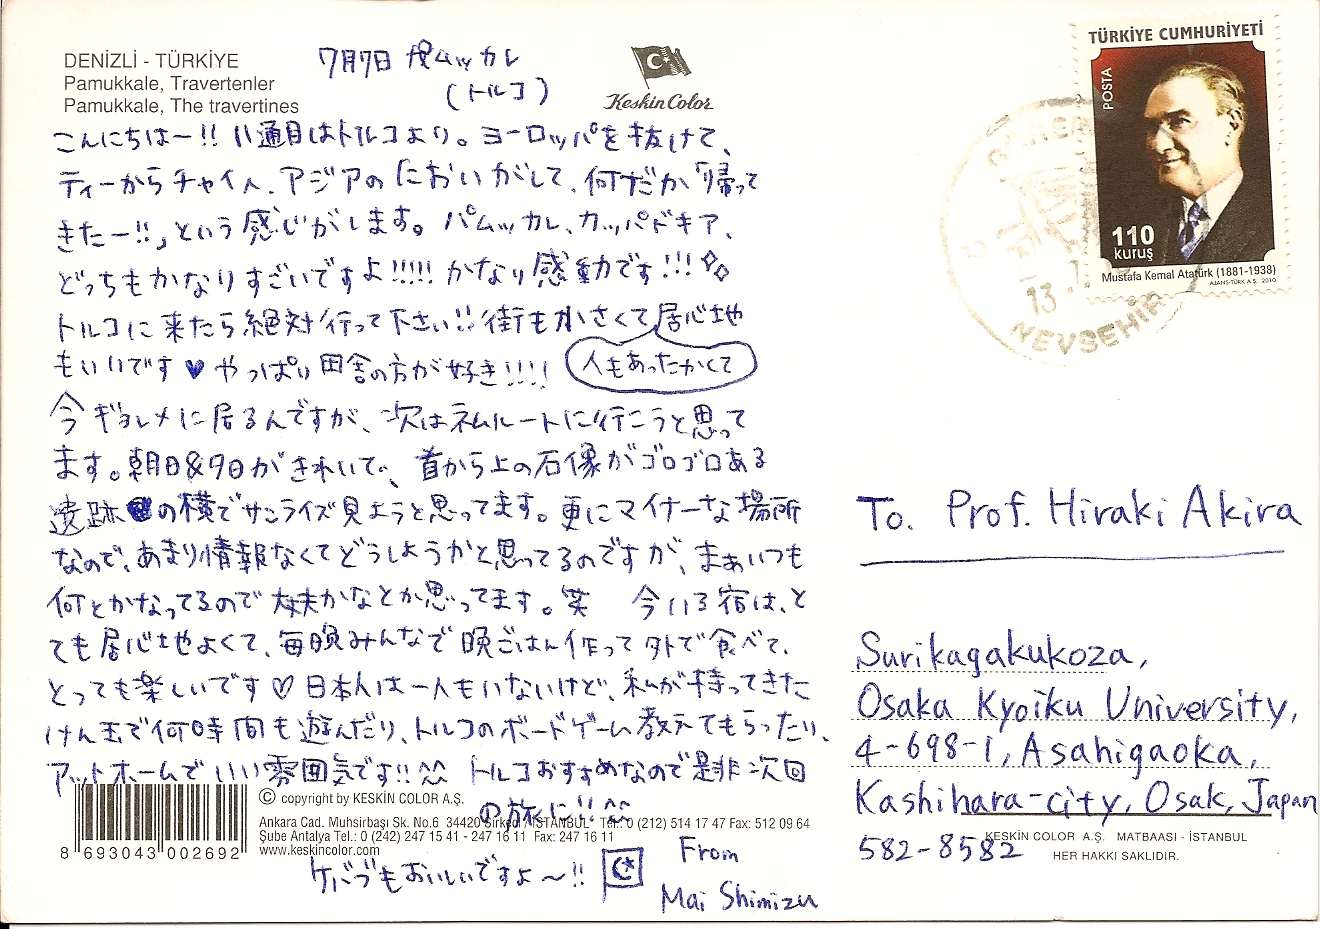 DENİZLİ - TÜRKİYE
Pamukkale, Travertenler
Pamukkale, The travertines
7月7日 パムッカレ
(トルコ)
Keskin Color
こんにちは〜!! 11通目はトルコより。ヨーロッパを抜けて、
ティーからチャイへ、アジアのにおいがして、何だか「帰って
きたー!!」という感じがします。パムッカレ、カッパドキア、
どっちもかなりすごいですよ!!!!! かなり感動です!!!
トルコに来たら絶対行って下さい!! 街も小さくて居心地
もいいです♥ やっぱり田舎の方が好き!!!!
人もあったかくて
今ギョレメに居るんですが、次はネムルートに行こうと思って
ます。朝日&夕日がきれいで、首から上の石像がゴロゴロある
遺跡の横でサンライズ見ようと思ってます。更にマイナーな場所
なので、あまり情報なくてどうしようかと思ってるのですが、まぁいつも
何とかなってるので大丈夫かなとか思ってます。笑 今いる宿は、と
ても居心地よくて、毎晩みんなで晩ごはん作って外で食べて、
とっても楽しいです♡ 日本人は一人もいないけど、私が持ってきた
けん玉で何時間も遊んだり、トルコのボードゲーム教えてもらったり、
アットホームでいい雰囲気です!! ^^ トルコおすすめなので是非次回
の旅に!! ^^
ケバブもおいしいですよ〜!!
From
Mai Shimizu
8 693043 002692
© copyright by KESKİN COLOR A.Ş.
Ankara Cad. Muhsirbaşı Sk. No.6 34420 Sirkeci / İSTANBUL Tel.: 0 (212) 514 17 47 Fax: 512 09 64
Şube Antalya Tel.: 0 (242) 247 15 41 - 247 16 11 Fax: 247 16 11
www.keskincolor.com
TÜRKİYE CUMHURİYETİ
POSTA
110
kuruş
Mustafa Kemal Atatürk (1881-1938)
AJANS-TÜRK A.Ş. 2010
13
NEVŞEHİR
To. Prof. Hiraki Akira
Surikagakukoza,
Osaka Kyoiku University,
4-698-1, Asahigaoka,
Kashihara-city, Osak, Japan
582-8582
KESKİN COLOR A.Ş. MATBAASI - İSTANBUL
HER HAKKI SAKLIDIR.